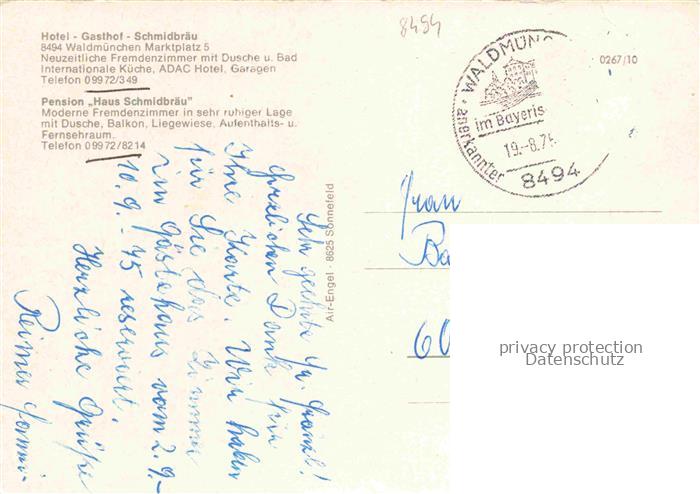 8494
Hotel - Gasthof - Schmidbräu
8494 Waldmünchen Marktplatz 5
Neuzeitliche Fremdenzimmer mit Dusche u. Bad
Internationale Küche, ADAC Hotel, Garagen
Telefon 09972/349
Pension „Haus Schmidbräu"
Moderne Fremdenzimmer in sehr ruhiger Lage
mit Dusche, Balkon, Liegewiese, Aufenthalts- u.
Fernsehraum.
Telefon 09972/8214
0267/10
WALDMÜN
im Bayeris
anerkannter
19.-8.75
8494
Sehr geehrte Fr.
herzlichen Dank für
Ihre Karte. Wir haben
für Sie das Zimmer
im Gästehaus vom 2.9.-
10.9.-75 reserviert.
Herzliche Grüße
Air-Engel · 8625 Sonnefeld
Frau
Ba
60
privacy protection
Datenschutz